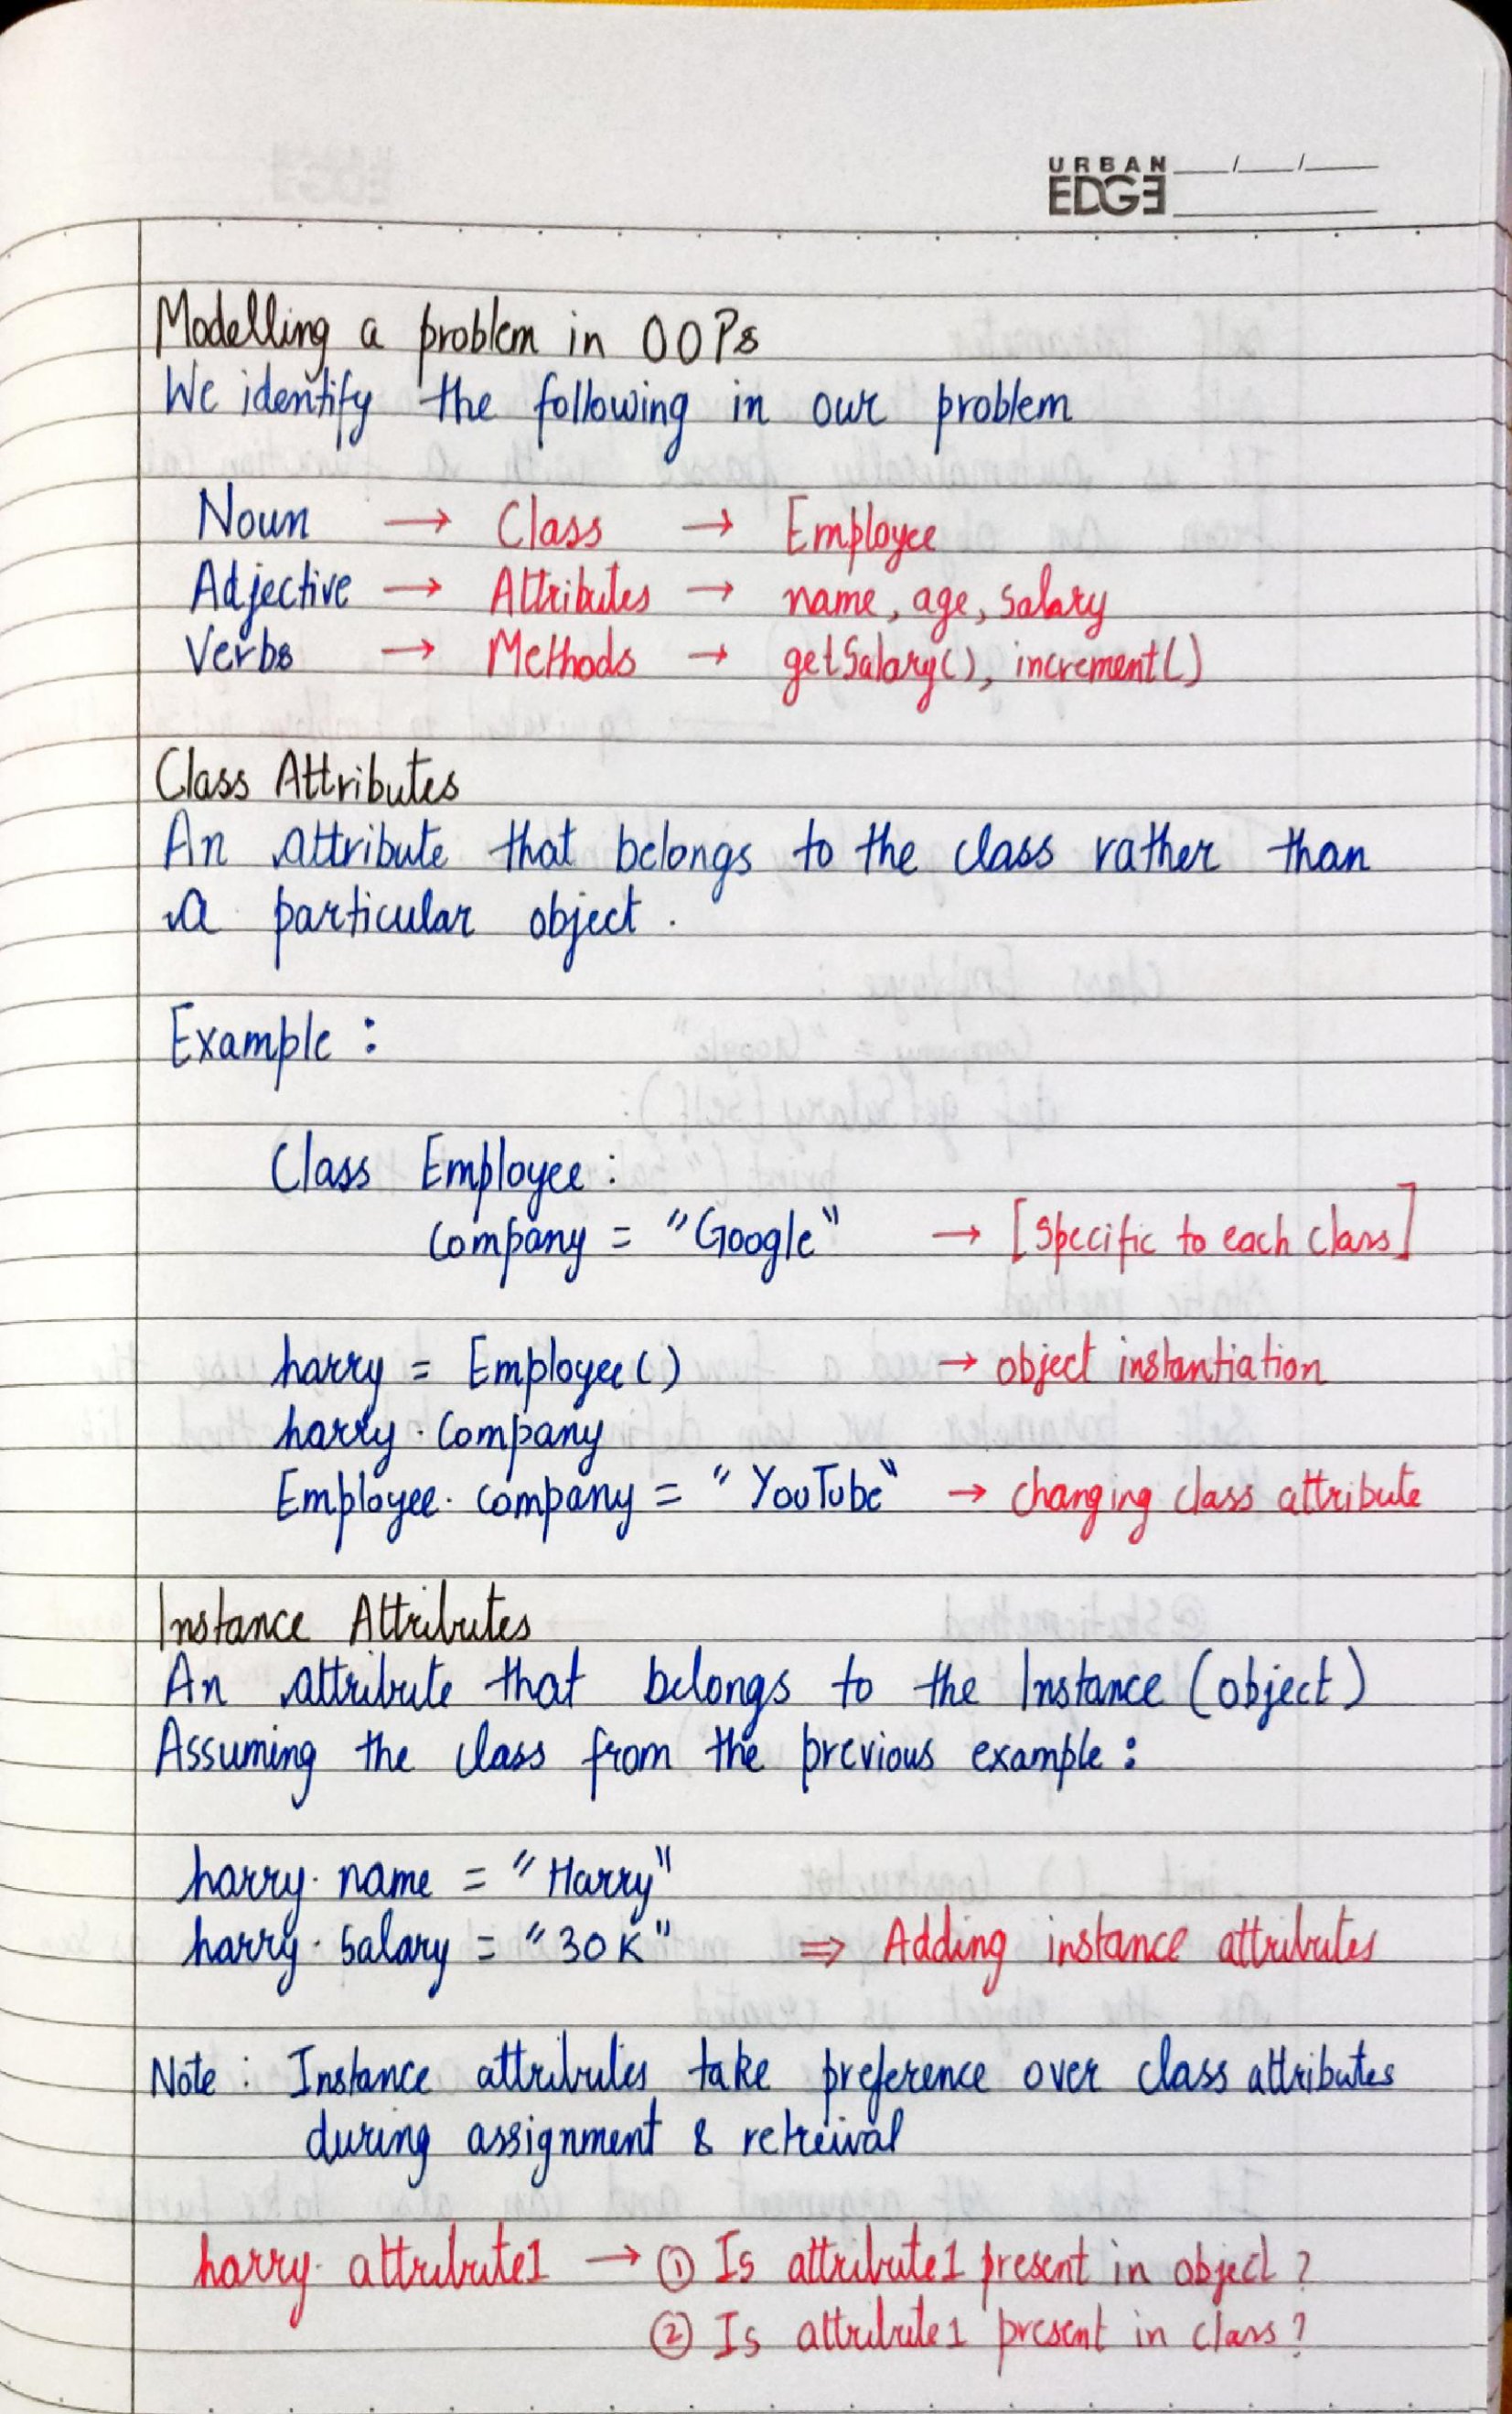 URBAN
EDGE
Modelling a problem in OOPs
We identify the following in our problem
Noun → Class → Employee
Adjective → Attributes → name, age, salary
Verbs → Methods → getSalary(), increment()
Class Attributes
An attribute that belongs to the class rather than
a particular object.
Example :
Class Employee:
company = "Google" → [Specific to each class]
harry = Employee() → object instantiation
harry.company
Employee.company = "YouTube" → changing class attribute
Instance Attributes
An attribute that belongs to the Instance (object)
Assuming the class from the previous example :
harry.name = "Harry"
harry.salary = "30K" ⇒ Adding instance attributes
Note : Instance attributes take preference over class attributes
during assignment & retreival
harry.attribute1 → ① Is attribute1 present in object ?
② Is attribute1 present in class ?